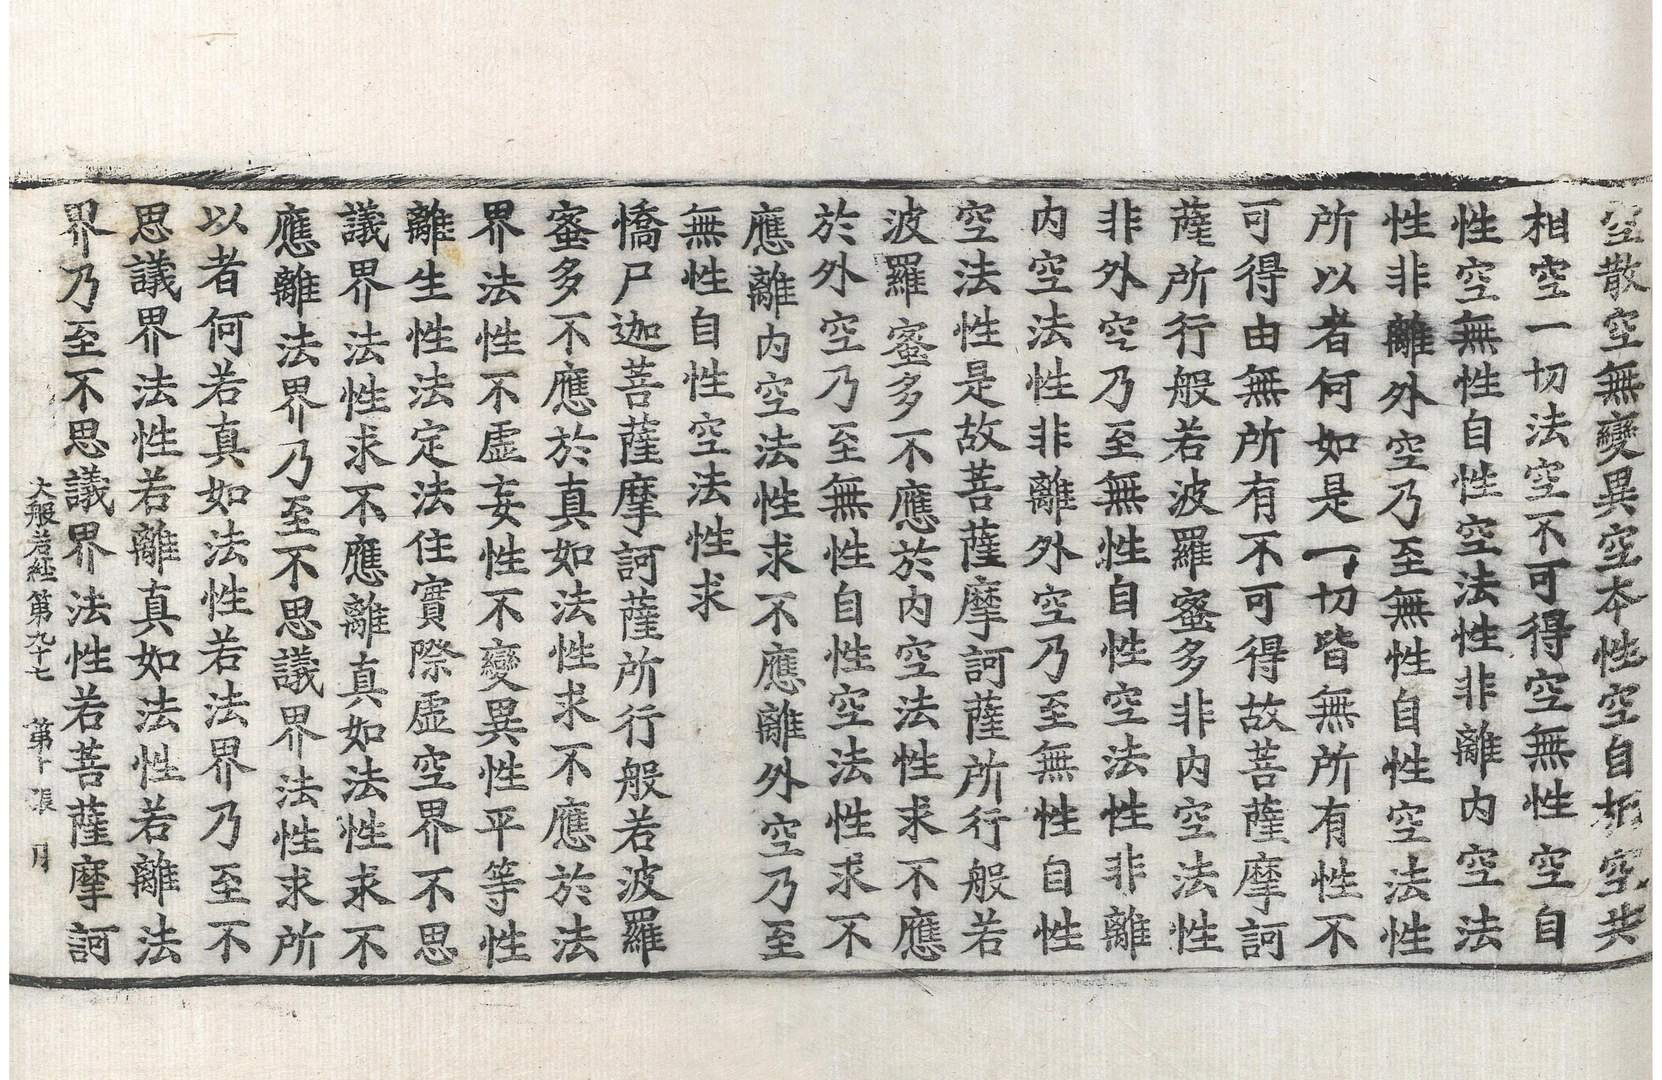 空散空無變異空本性空自相空共
相空一切法空不可得空無性空自
性空無性自性空法性非離内空法
性非離外空乃至無性自性空法性
所以者何如是一切皆無所有性不
可得由無所有不可得故菩薩摩訶
薩所行般若波羅蜜多非内空法性
非外空乃至無性自性空法性非離
内空法性非離外空乃至無性自性
空法性是故菩薩摩訶薩所行般若
波羅蜜多不應於内空法性求不應
於外空乃至無性自性空法性求不
應離内空法性求不應離外空乃至
無性自性空法性求
憍尸迦菩薩摩訶薩所行般若波羅
蜜多不應於真如法性求不應於法
界法性不虛妄性不變異性平等性
離生性法定法住實際虛空界不思
議界法性求不應離真如法性求不
應離法界乃至不思議界法性求所
以者何若真如法性若法界乃至不
思議界法性若離真如法性若離法
界乃至不思議界法性若菩薩摩訶
大般若経第九十七 第十張 月